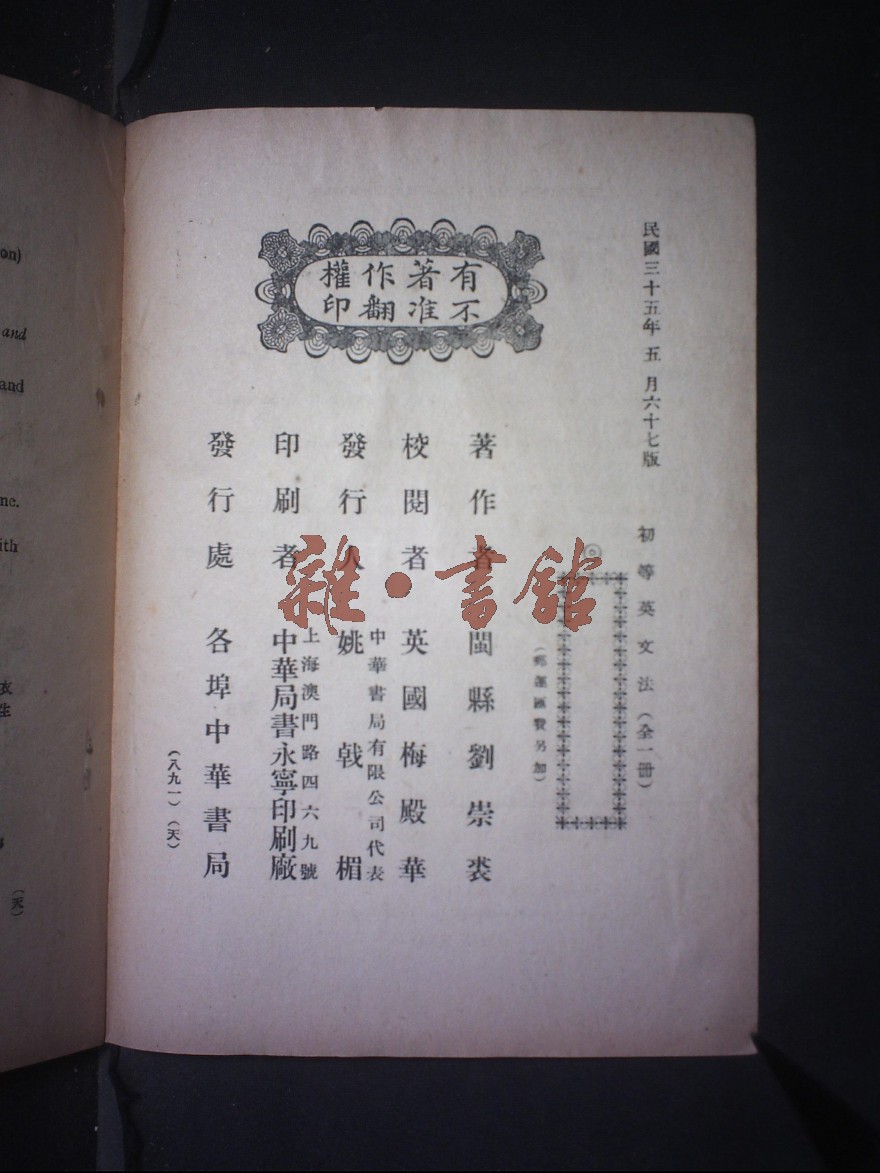 民國三十五年五月六十七版
初等英文法（全一冊）
◎
（郵運匯費另加）
有著作權
不准翻印
著作者 閩縣劉崇裘
校閱者 英國梅殿華
中華書局有限公司代表
發行人 姚戟楣
上海澳門路四六九號
印刷者 中華局書永寧印刷廠
發行處 各埠中華書局
（八九一）（天）
雜·書館
on)
and
and
ne.
ith
衣
生
（天）